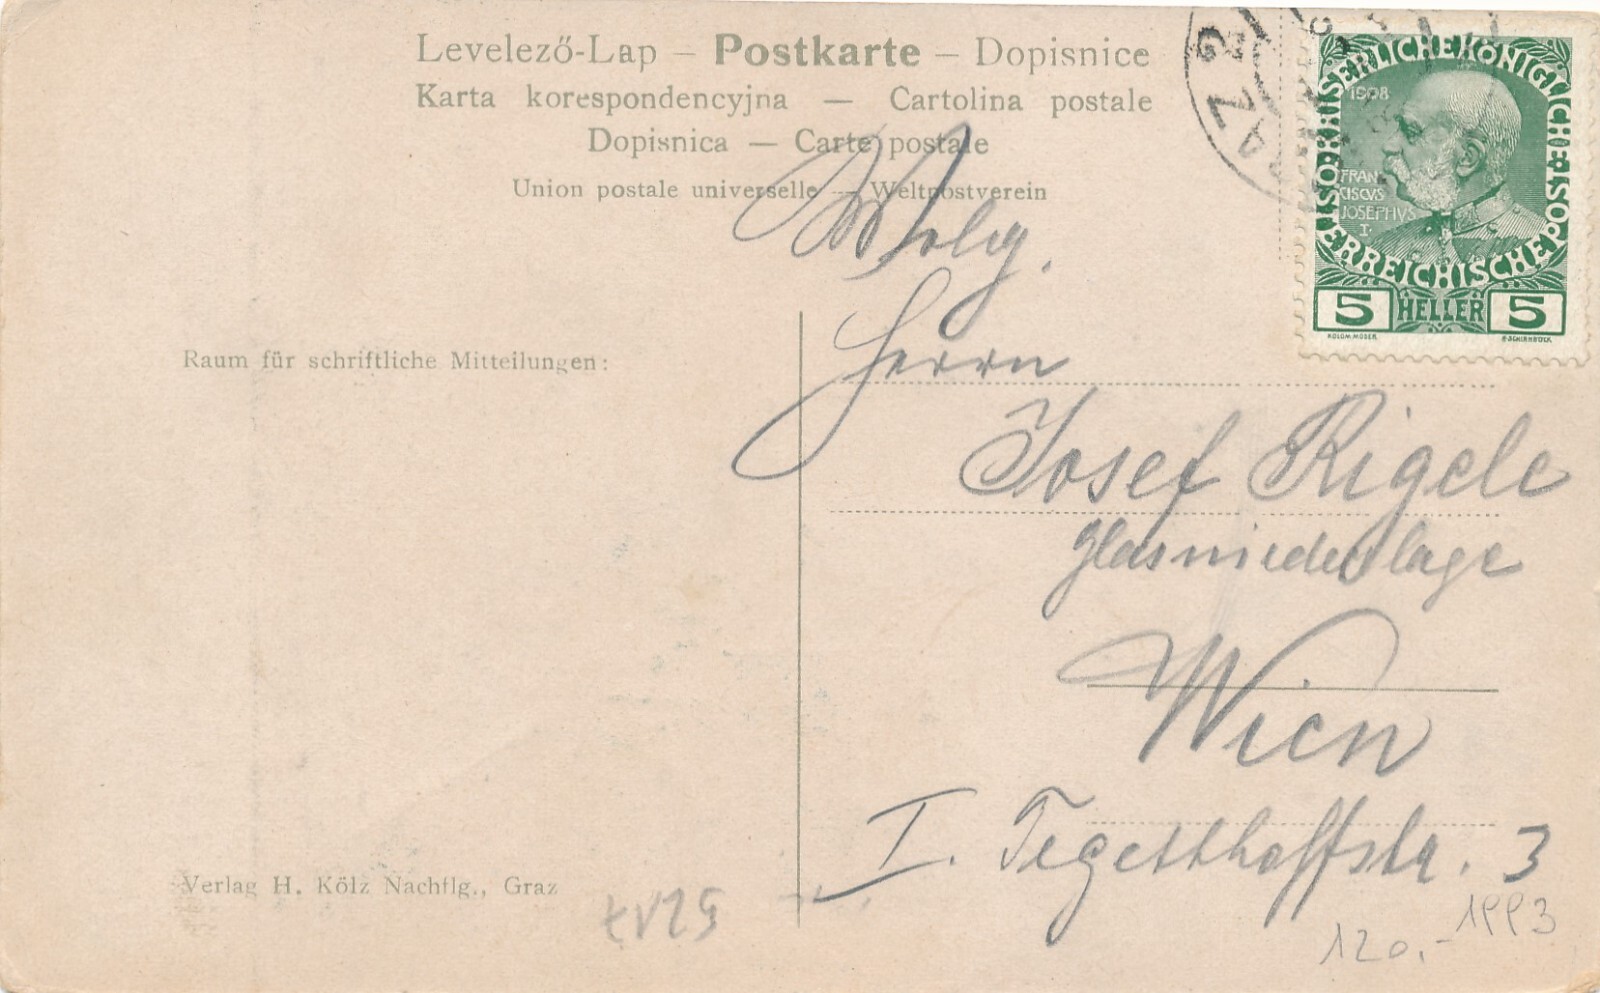 Levelező-Lap – Postkarte – Dopisnice
Karta korespondencyjna — Cartolina postale
Dopisnica — Carte postale
Union postale universelle — Weltpostverein
ÖSTERREICHISCHE POST KAISERLICHE KÖNIGLICHE
1908
FRAN
CISCVS
JOSEPHVS
I.
5 HELLER 5
KOLOM.MOSER. F.SCHIRNBÖCK
Wohlg.
Herrn
Josef Rigele
Glasniederlage
Wien
I. Tegetthoffstr. 3
Raum für schriftliche Mitteilungen:
Verlag H. Kölz Nachflg., Graz
1993
120.-